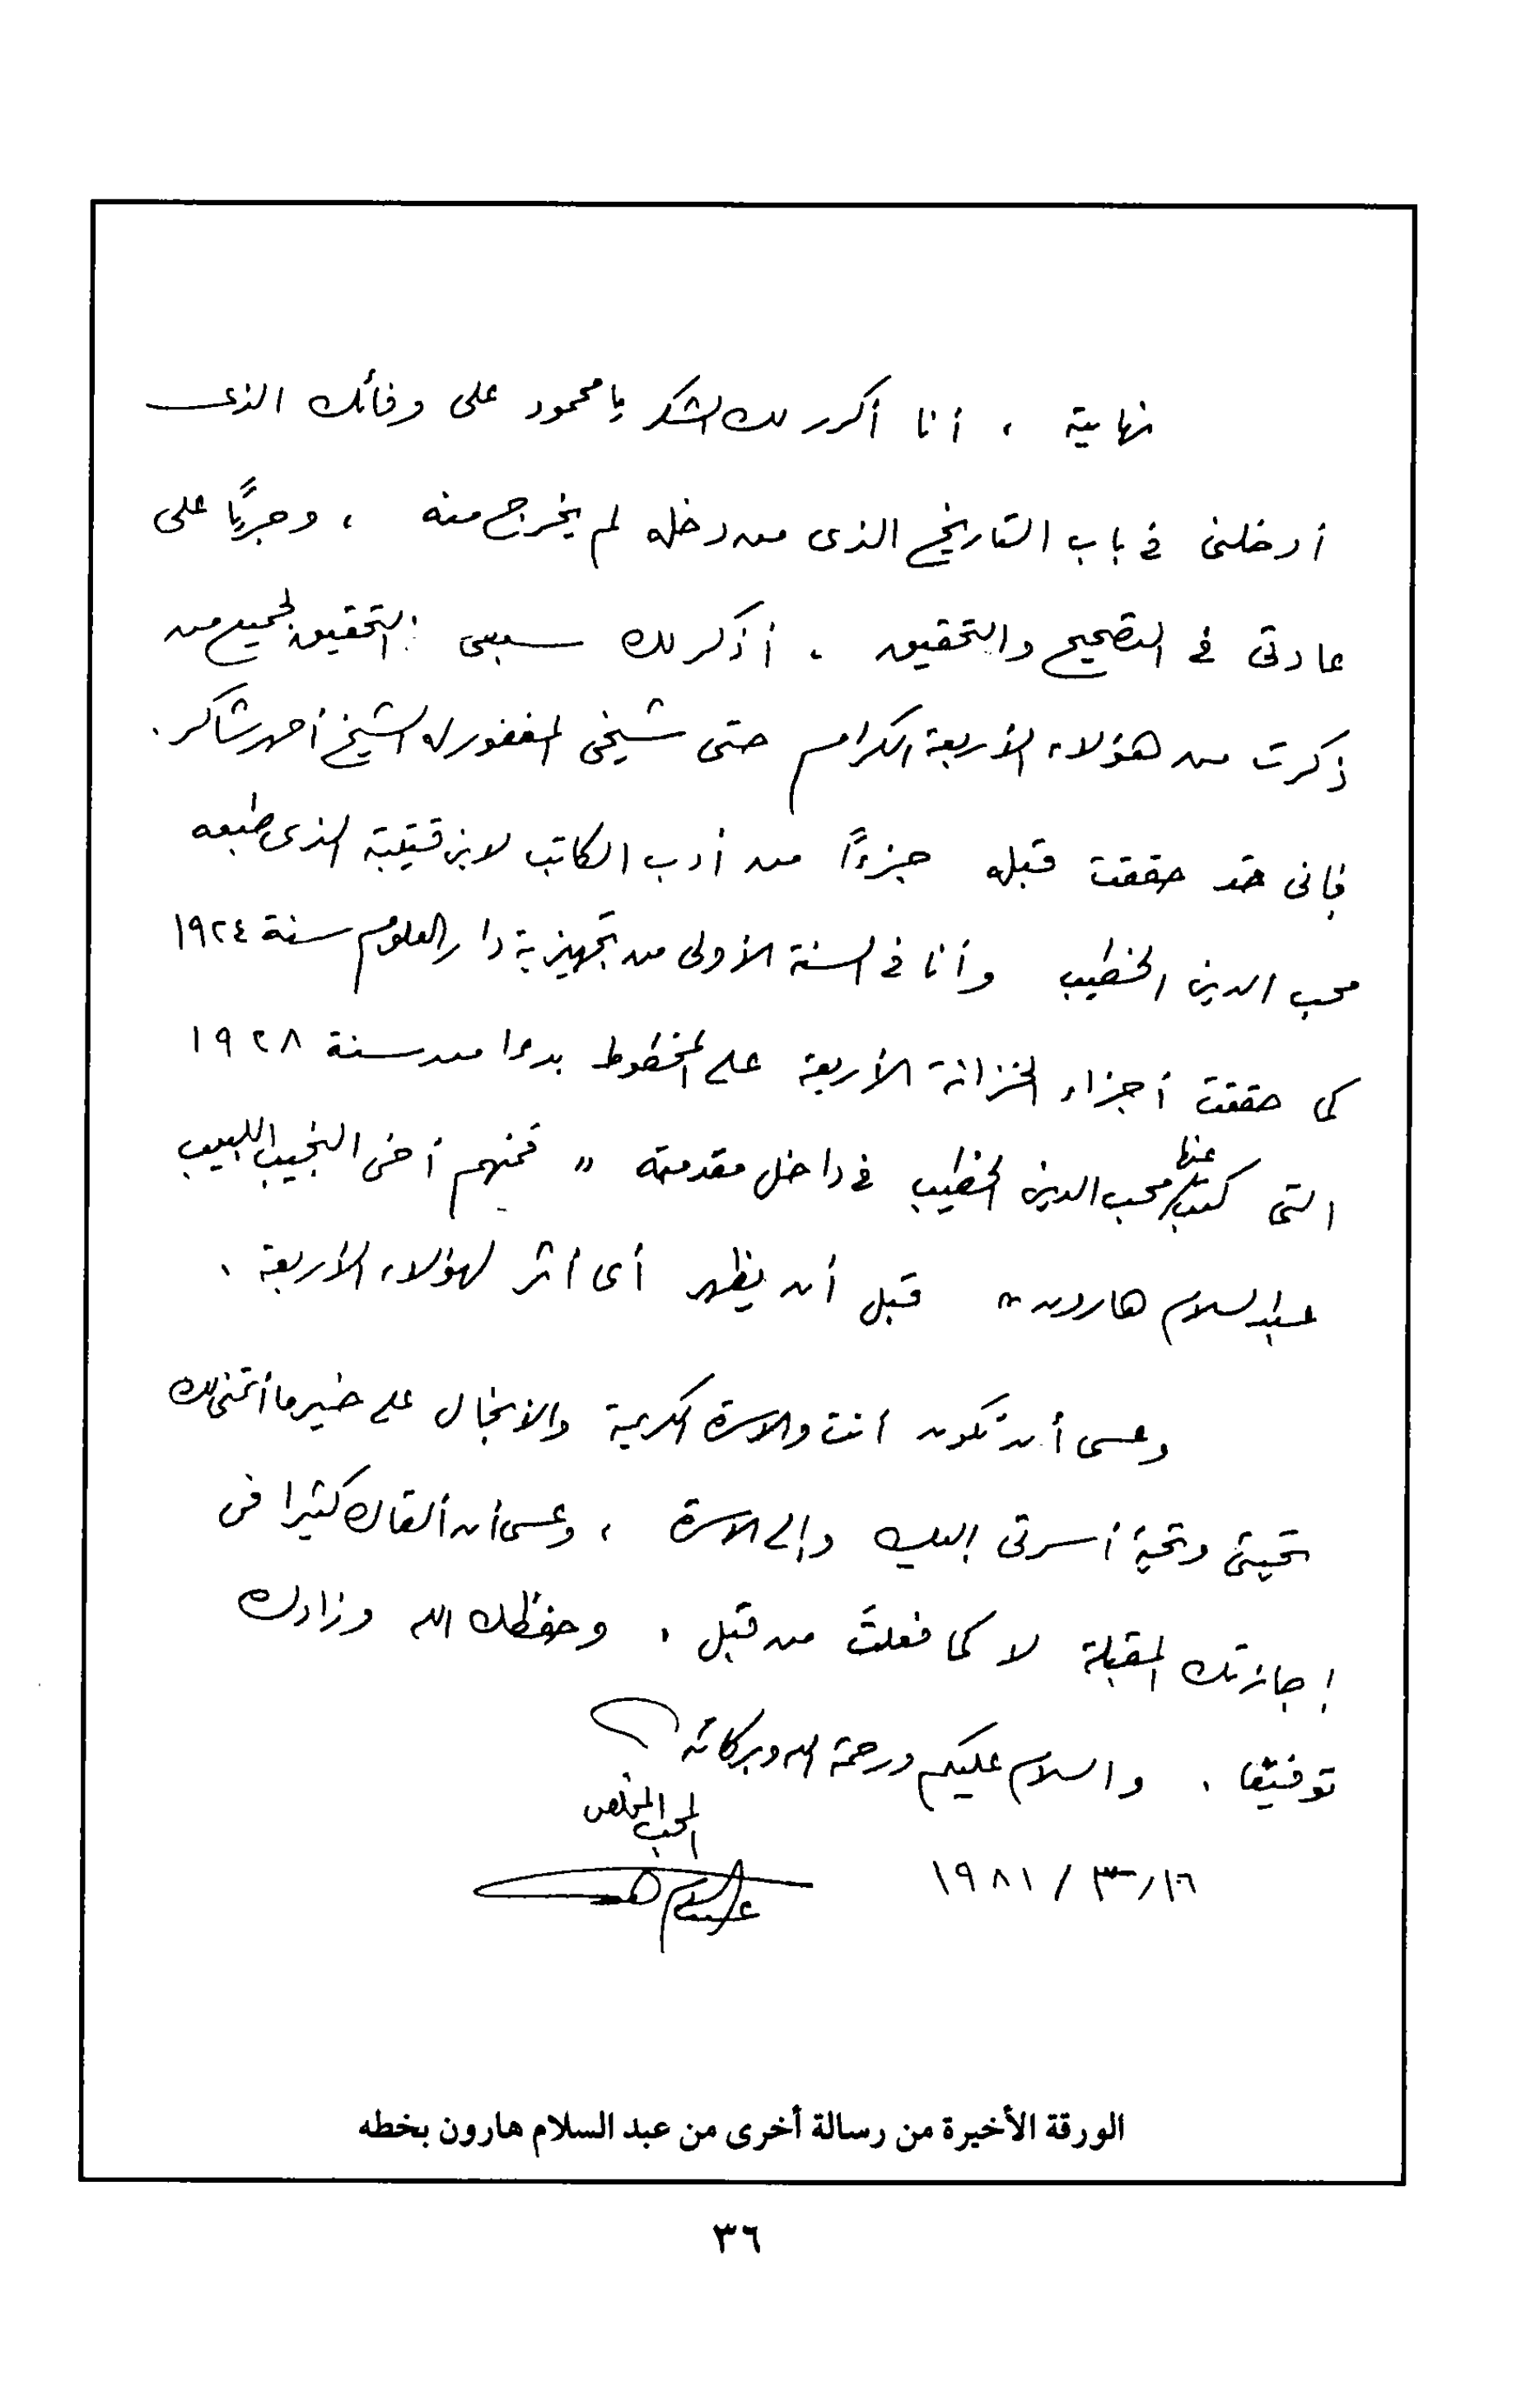 نهاية ، أنا أكرر لك الشكر يا محمود على وفائك الذى
أدخلنى فى باب التاريخ الذى من دخله لم يخرج منه ، وجريًا على
عادتى فى التصحيح والتحقيق ، أذكر لك سبقى فى التحقيق لجميع من
ذكرت من هؤلاء الأربعة الكرام حتى شيخى المغفور له الشيخ أحمد شاكر .
فإنى قد حققت قبله جزءًا من أدب الكاتب لابن قتيبة الذى طبعه
محب الدين الخطيب وأنا فى السنة الأولى من تجهيزية دار العلوم سنة ١٩٢٤
كما حققت أجزاء الخزانة الأربعة على المخطوط بدءا من سنة ١٩٢٨
التى كتب عنها محب الدين الخطيب فى داخل مقدمته " فمنهم أخى النجيب اللبيب
عبد السلام هارون " قبل أن يظهر أى أثر لهؤلاء الأربعة .
وعسى أن تكون أنت والأسرة الكريمة والأنجال على خير ما أتمنى لك
تحيتى وتحية أسرتى إليك وإلى الأسرة ، وعسى أن ألقاك كثيرا فى
إجازتك المقبلة لا كما فعلتَ من قبل . وحفظك الله وزادك
توفيقا . والسلام عليكم ورحمة الله وبركاته
المحب المخلص
١٦/٣/١٩٨١
عبد السلام هارون
الورقة الأخيرة من رسالة أخرى من عبد السلام هارون بخطه
٣٦